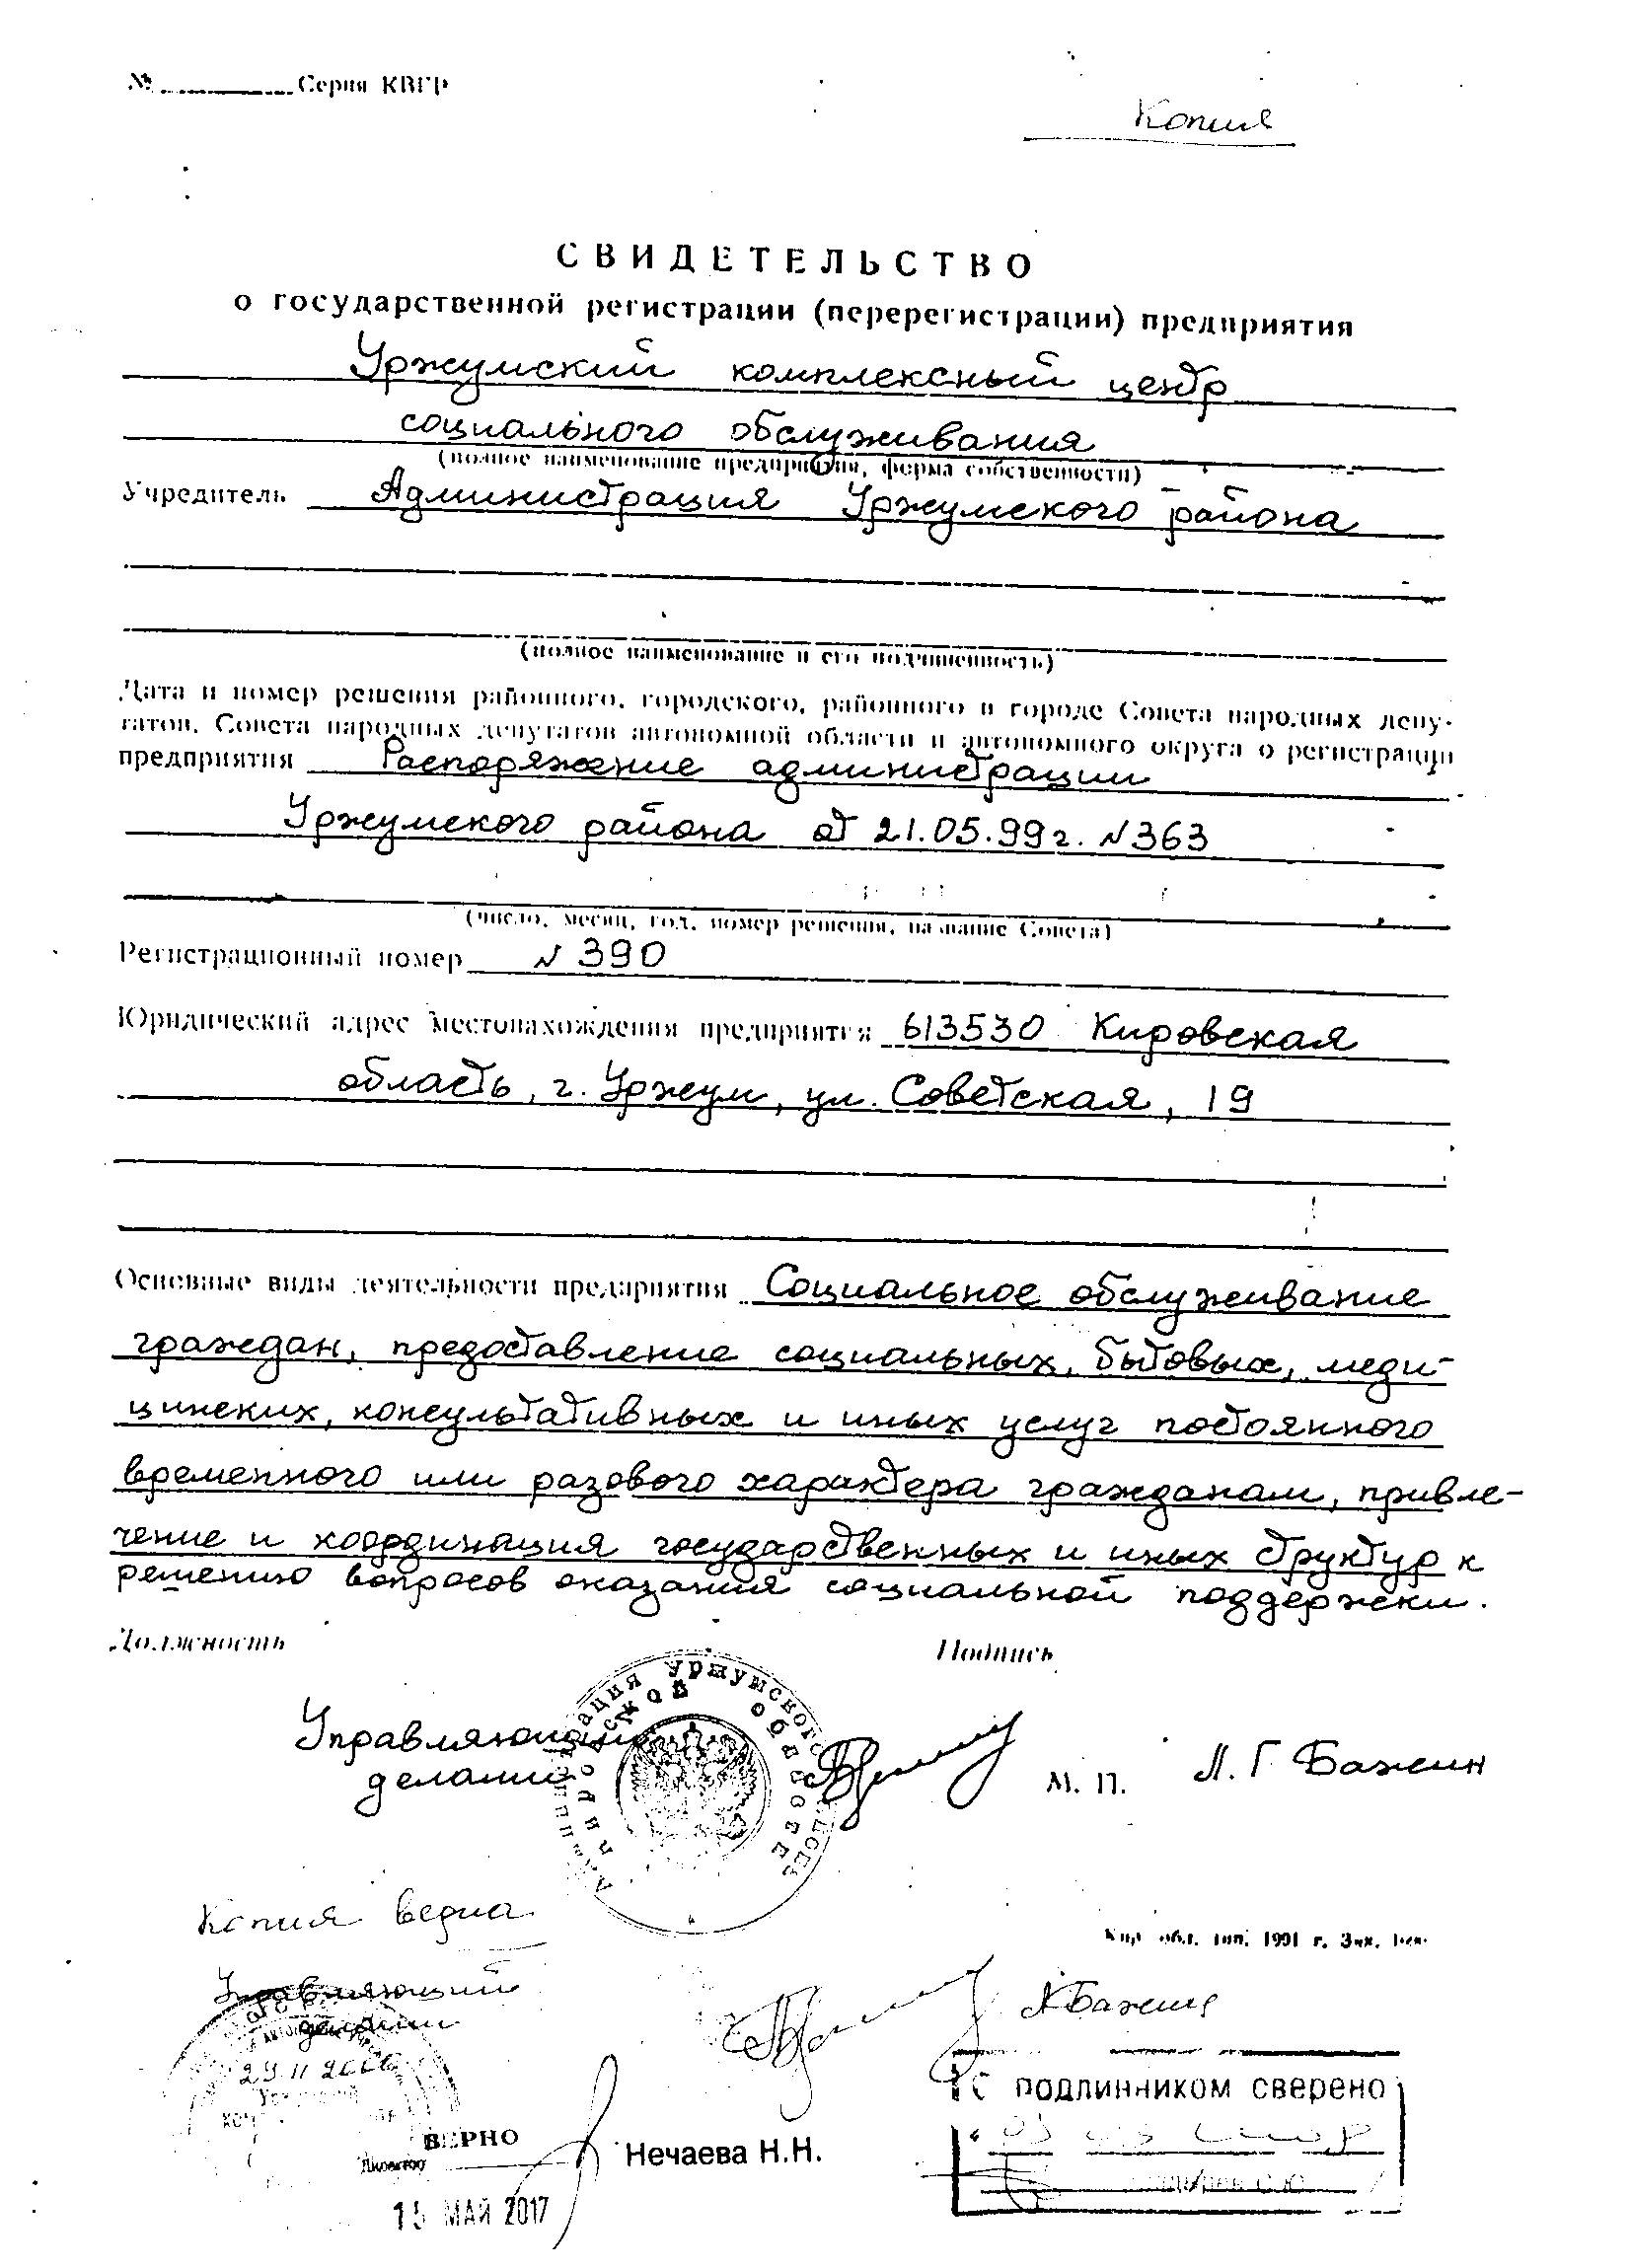 № Серия КВГР
Копия
СВИДЕТЕЛЬСТВО
о государственной регистрации (перерегистрации) предприятия
Уржумский комплексный центр
социального обслуживания
(полное наименование предприятия, форма собственности)
Учредитель Администрация Уржумского района
(полное наименование и его подчиненность)
Дата и номер решения районного, городского, районного в городе Совета народных депу-
татов, Совета народных депутатов автономной области и автономного округа о регистрации
предприятия Распоряжение администрации
Уржумского района от 21.05.99г. N363
(число, месяц, год, номер решения, название Совета)
Регистрационный номер N 390
Юридический адрес местонахождения предприятия 613530 Кировская
область, г. Уржум, ул. Советская, 19
Основные виды деятельности предприятия Социальное обслуживание
граждан, предоставление социальных, бытовых, меди-
цинских, консультативных и иных услуг постоянного
временного или разового характера гражданам, привле-
чение и координация государственных и иных структур к
решению вопросов оказания социальной поддержки.
Должность Подпись
Администрация Уржумского
Кировской области
Управляющий
делами М. П. Л. Г Бажин
Копия верна
Кир. обл. тип. 1991 г. Зак.
Управляющий
делами ЛБажин
29 11
С ПОДЛИННИКОМ СВЕРЕНО
ВЕРНО
Директор Нечаева Н.Н.
15 МАЙ 2017